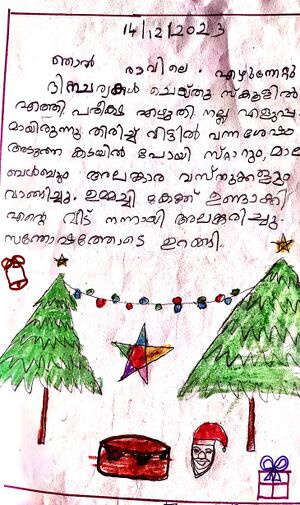 14/12/2023
ഞാൻ രാവിലെ എഴുന്നേറ്റു
ദിനചര്യകൾ ചെയ്തു. സ്കൂളിൽ
എത്തി പരീക്ഷ എഴുതി നല്ല എളുപ്പ
മായിരുന്നു തിരിച്ച് വീട്ടിൽ വന്നശേഷം
അടുത്ത കടയിൽ പോയി സ്റ്റാറും, മാല
ബൾബും അലങ്കാര വസ്തുക്കളും
വാങ്ങിച്ചു. ഉമ്മച്ചി കേക്ക് ഉണ്ടാക്കി
എന്റെ വീട് നന്നായി അലങ്കരിച്ചു.
സന്തോഷത്തോടെ ഉറങ്ങി.